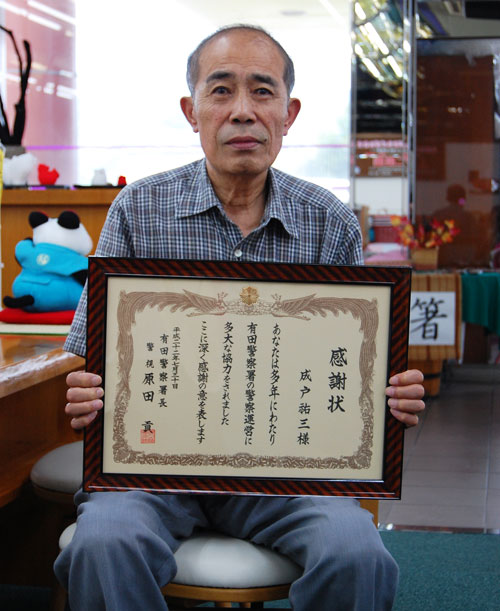 感謝状
成戸祐三様
あなたは多年にわたり
有田警察署の警察運営に
多大な協力をされました
ここに深く感謝の意を表します
平成二十二年七月二十日
有田警察署長
警視 原田 貢
箸